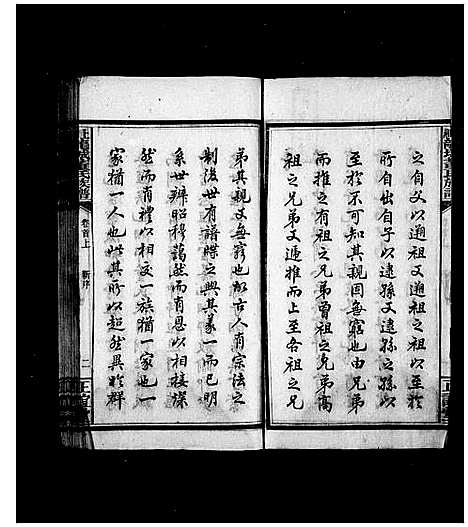 之自父以遡祖又遡祖之祖以至於
所自出自子以逮孫又逮孫之孫以
至於不可知其親固無窮也由兄弟
而推之有祖之兄弟曾祖之兄弟高
祖之兄弟又遞推而上至各祖之兄
弟其親又無窮也故古人有宗法之
制後世有譜牒之興其義一而已明
系世辨昭穆藹然而有恩以相接燦
然而有禮以相交一族猶一家也一
家猶一人也此其所以超然異於群
族譜
卷首上
新序
二